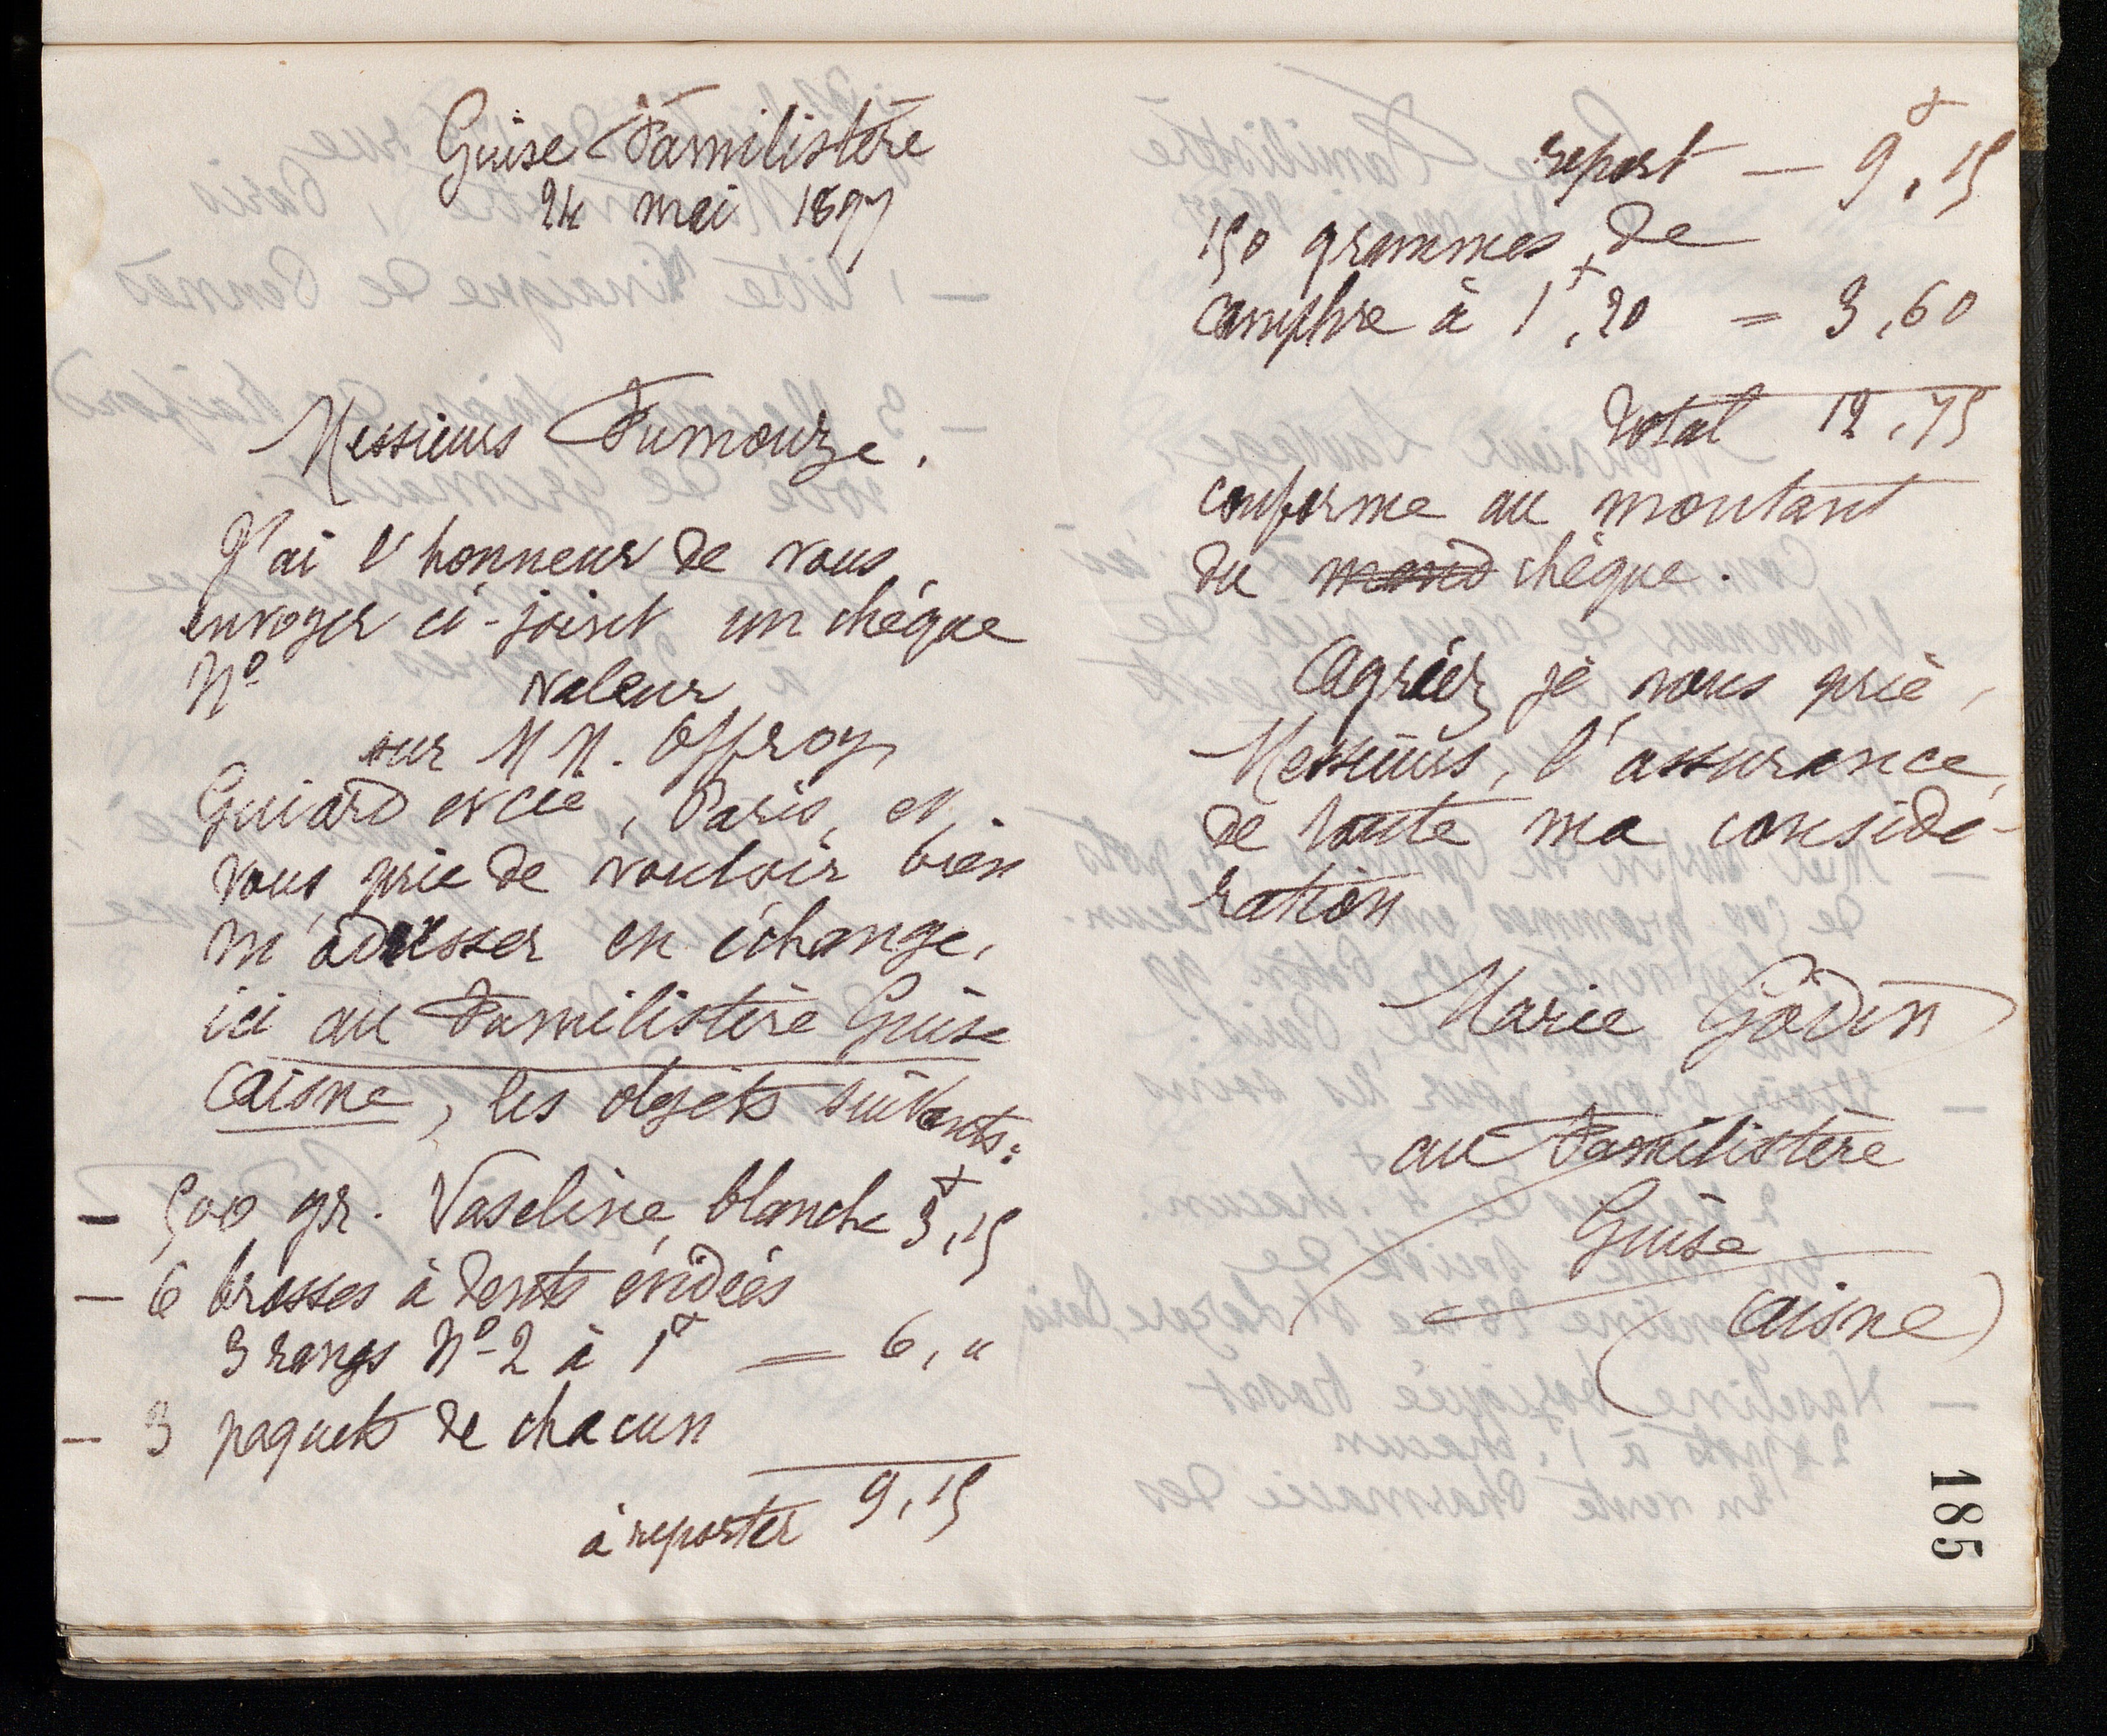 Guise Familistère
24 mai 1897
Messieurs Fumouze.
J'ai l'honneur de vous
envoyer ci-joint un chèque
Nº valeur
sur MM. Offroy
Guiard et cie, Paris, et
vous prie de vouloir bien
m'adresser en échange,
ici au Familistère Guise
Aisne, les objets suivants:
- 500 gr. Vaseline blanche 3f,15
- 6 brosses à dents évidées
3 rangs Nº 2 à 1f = 6, "
- 3 paquets de chacun
à reporter 9,15
report — 9f,15
150 grammes de
camphre à 1f,20 = 3,60
Total 12,75
conforme au montant
du mand chèque.
Agréez je vous prie,
Messieurs, l'assurance
de toute ma considé-
ration
Marie Godin
au Familistère
Guise
(Aisne)
185